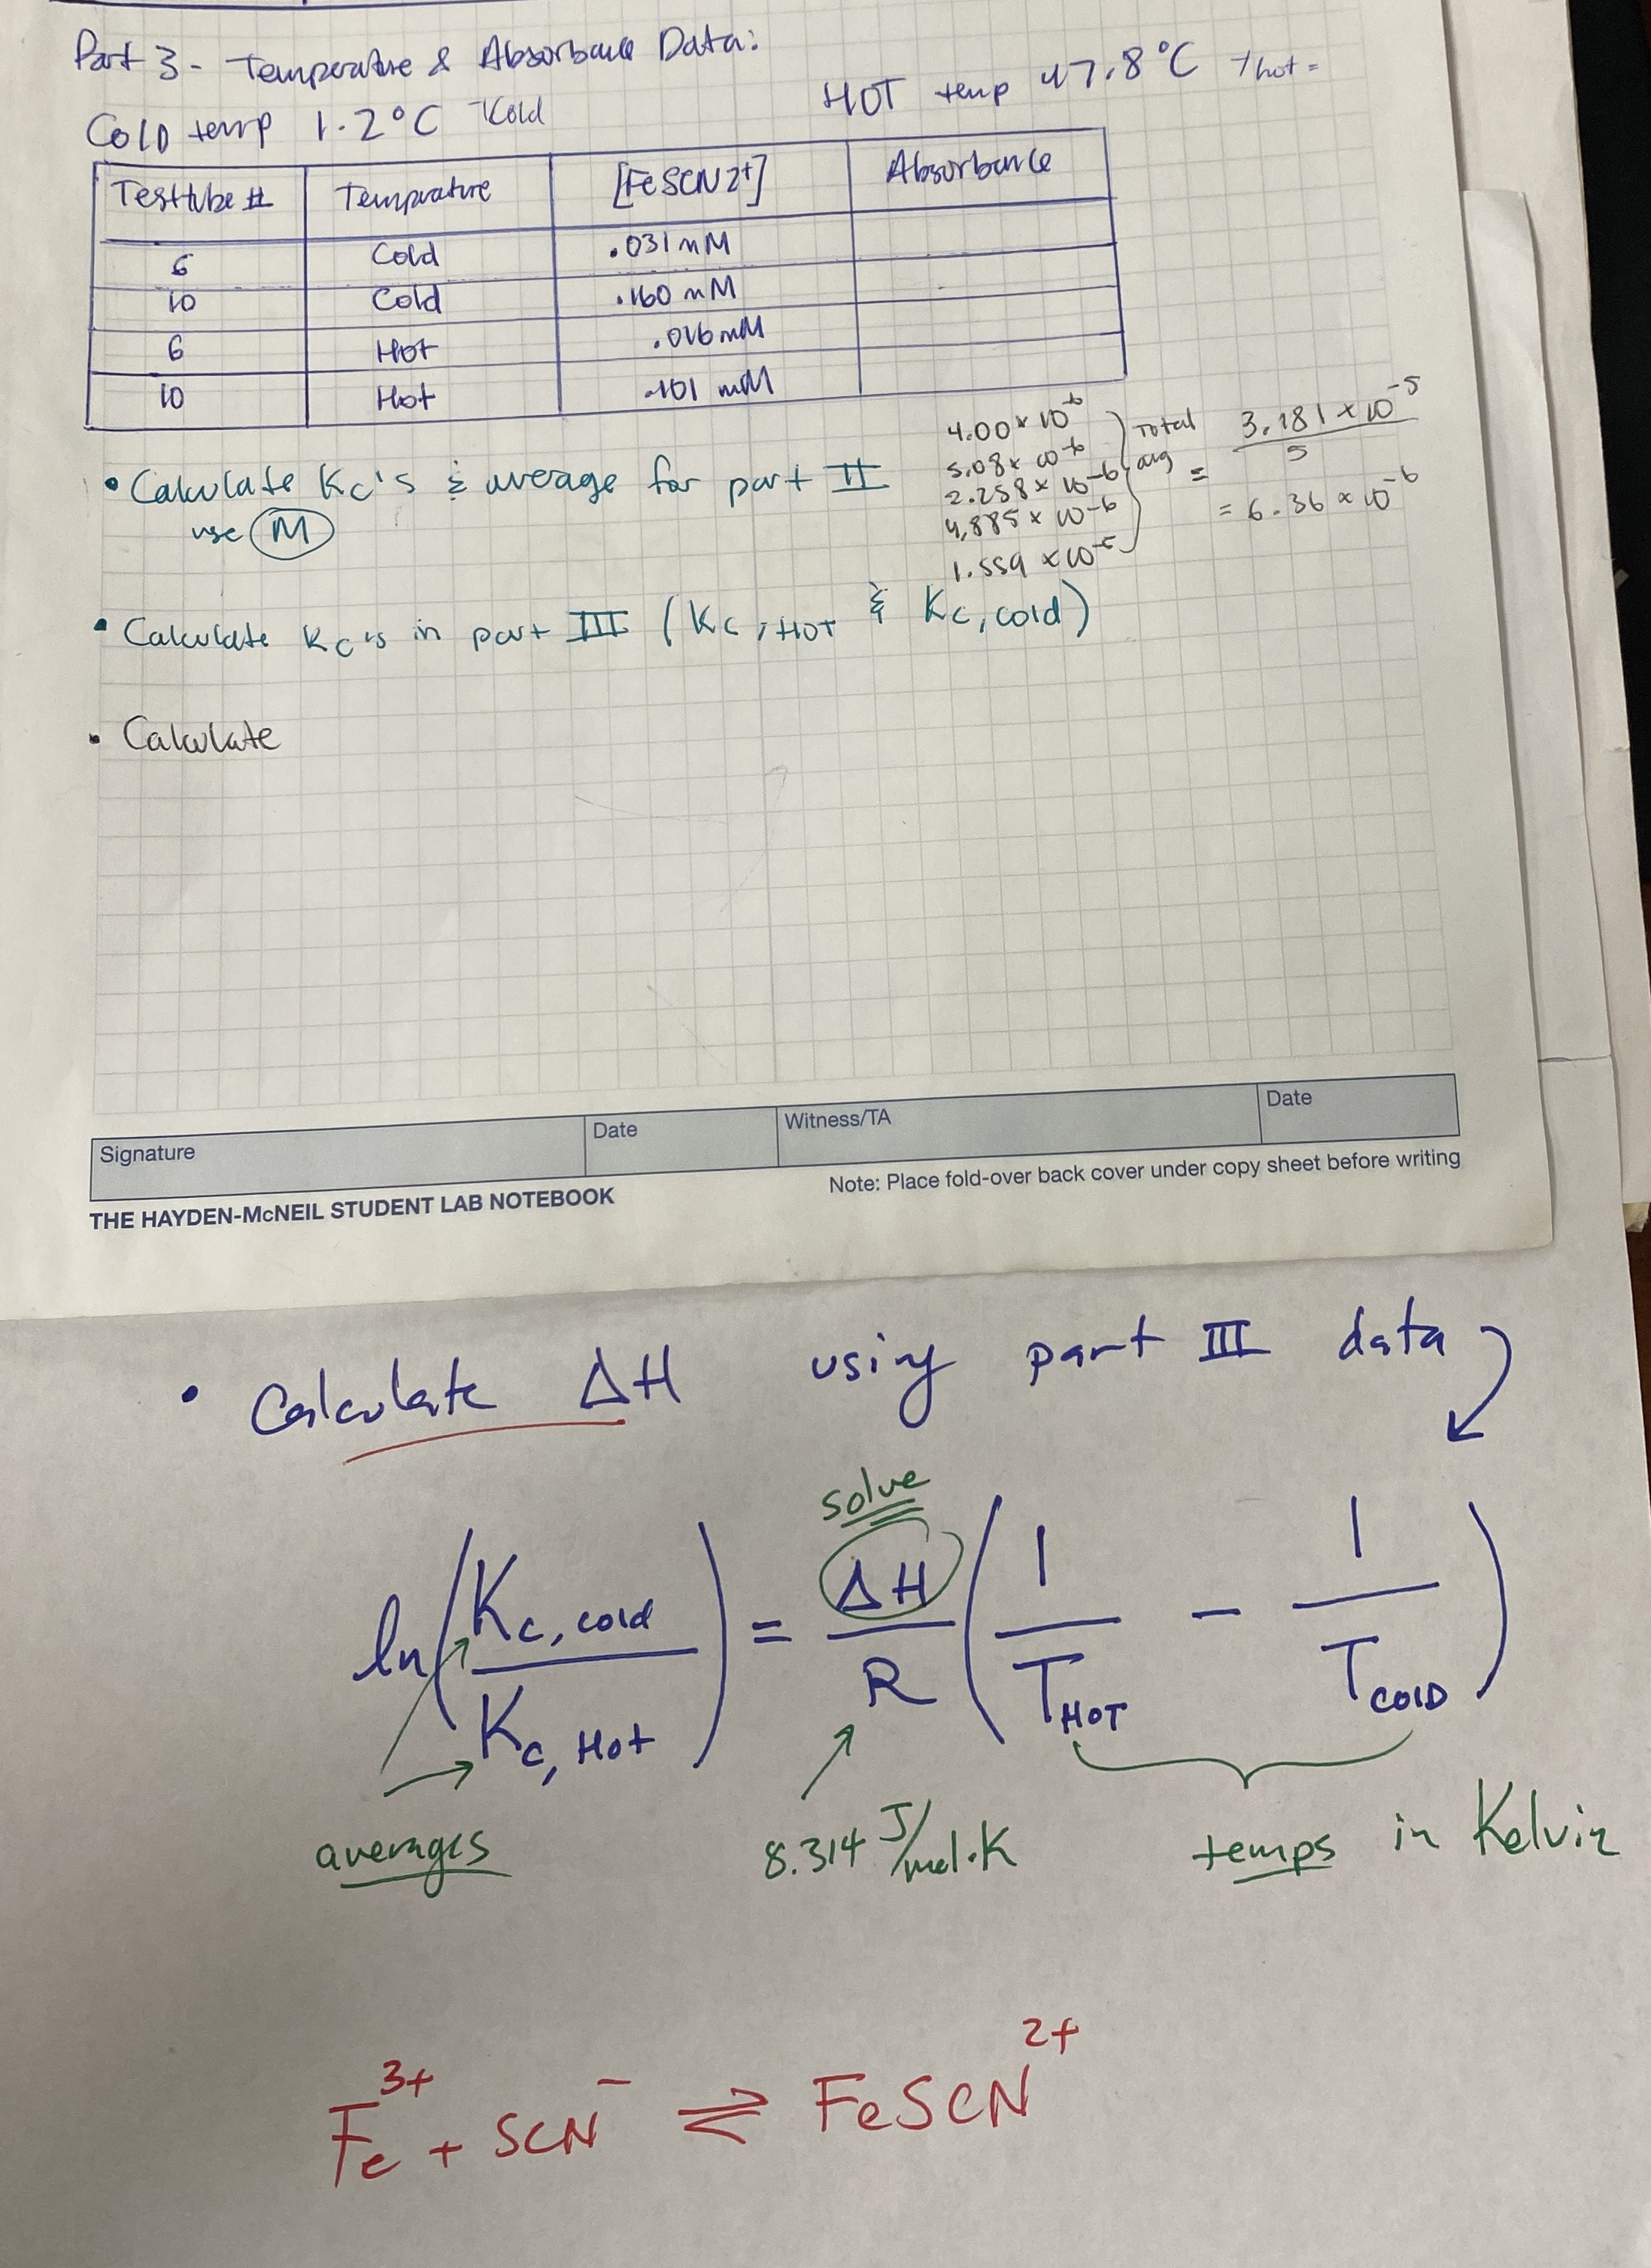 Part 3 - Temperature & Absorbance Data:
Cold temp 1.2°C Tcold
HOT temp 47.8°C Thot =
Test tube # Temprature [FeSCN2+] Absorbance
6 Cold .031 mM
10 Cold .160 mM
6 Hot .016 mM
10 Hot .101 mM
• Calculate Kc's & average for part II
use M
4.00 × 10-6
5.08 × 10-6
2.258 × 10-6
4.885 × 10-6
1.559 × 10-5
Total avg = 3.181 × 10-5 / 5
= 6.36 × 10-6
• Calculate Kc's in part III (Kc, HOT & Kc, cold)
• Calculate
Signature Date Witness/TA Date
THE HAYDEN-McNEIL STUDENT LAB NOTEBOOK
Note: Place fold-over back cover under copy sheet before writing
• Calculate ΔH using part III data
solve
ln(Kc, cold / Kc, Hot) = ΔH/R (1/THOT - 1/TCOLD)
averages
8.314 J/mol·K
temps in Kelvin
Fe3+ + SCN- ⇌ FeSCN2+